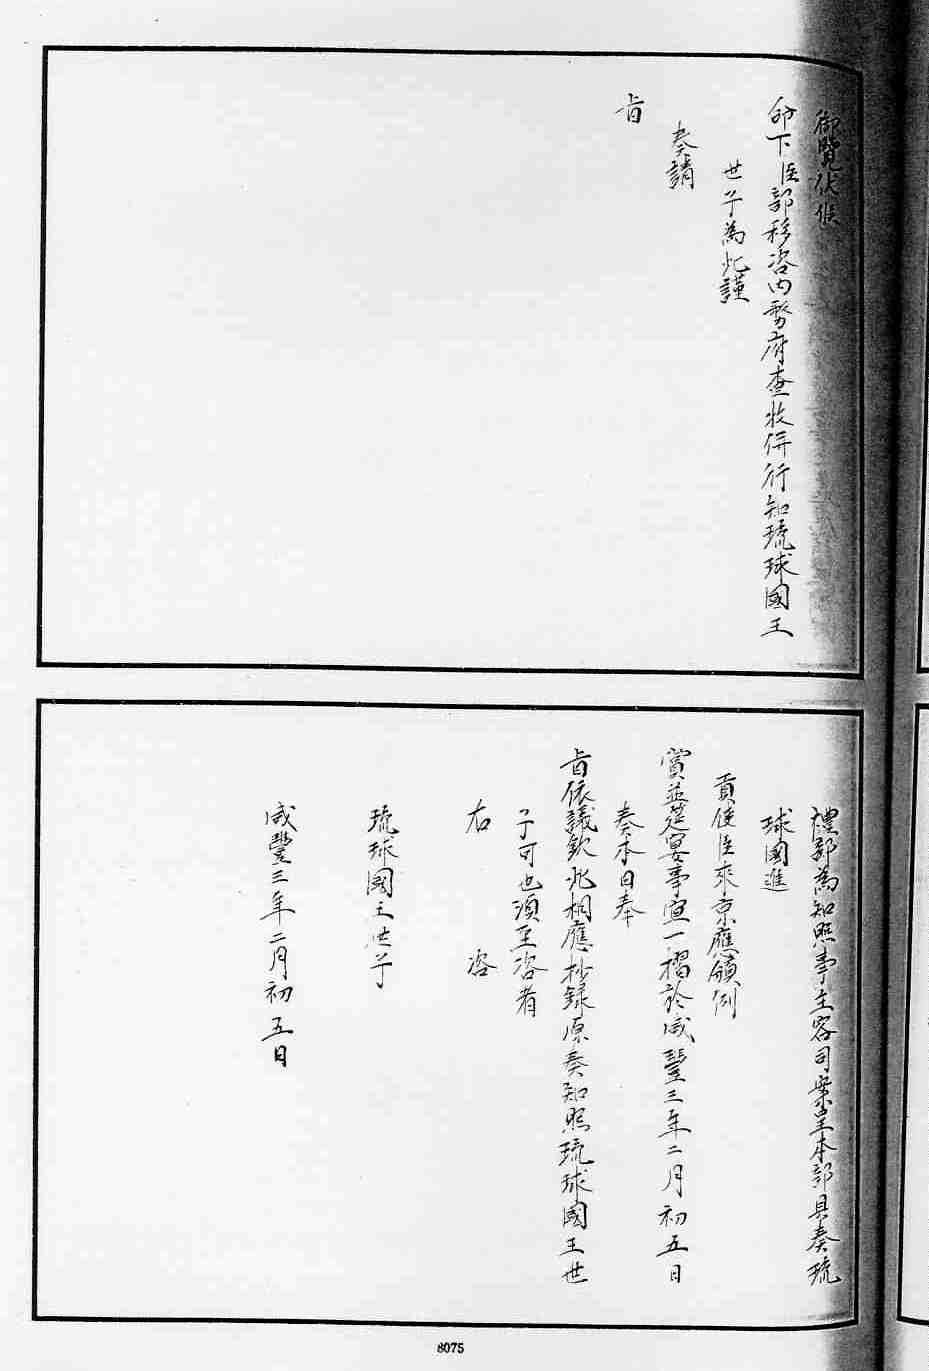 御覽伏候
命下臣部移咨內務府查收併行知琉球國王
世子為此謹
奏請
旨
禮部為知照事主客司案呈本部具奏琉
球國進
貢使臣來京應領例
賞並筵宴事宜一摺於咸豐三年二月初五日
奏本日奉
旨依議欽此相應抄錄原奏知照琉球國王世
子可也須至咨者
右 咨
琉球國王世子
咸豐三年二月初五日
8075